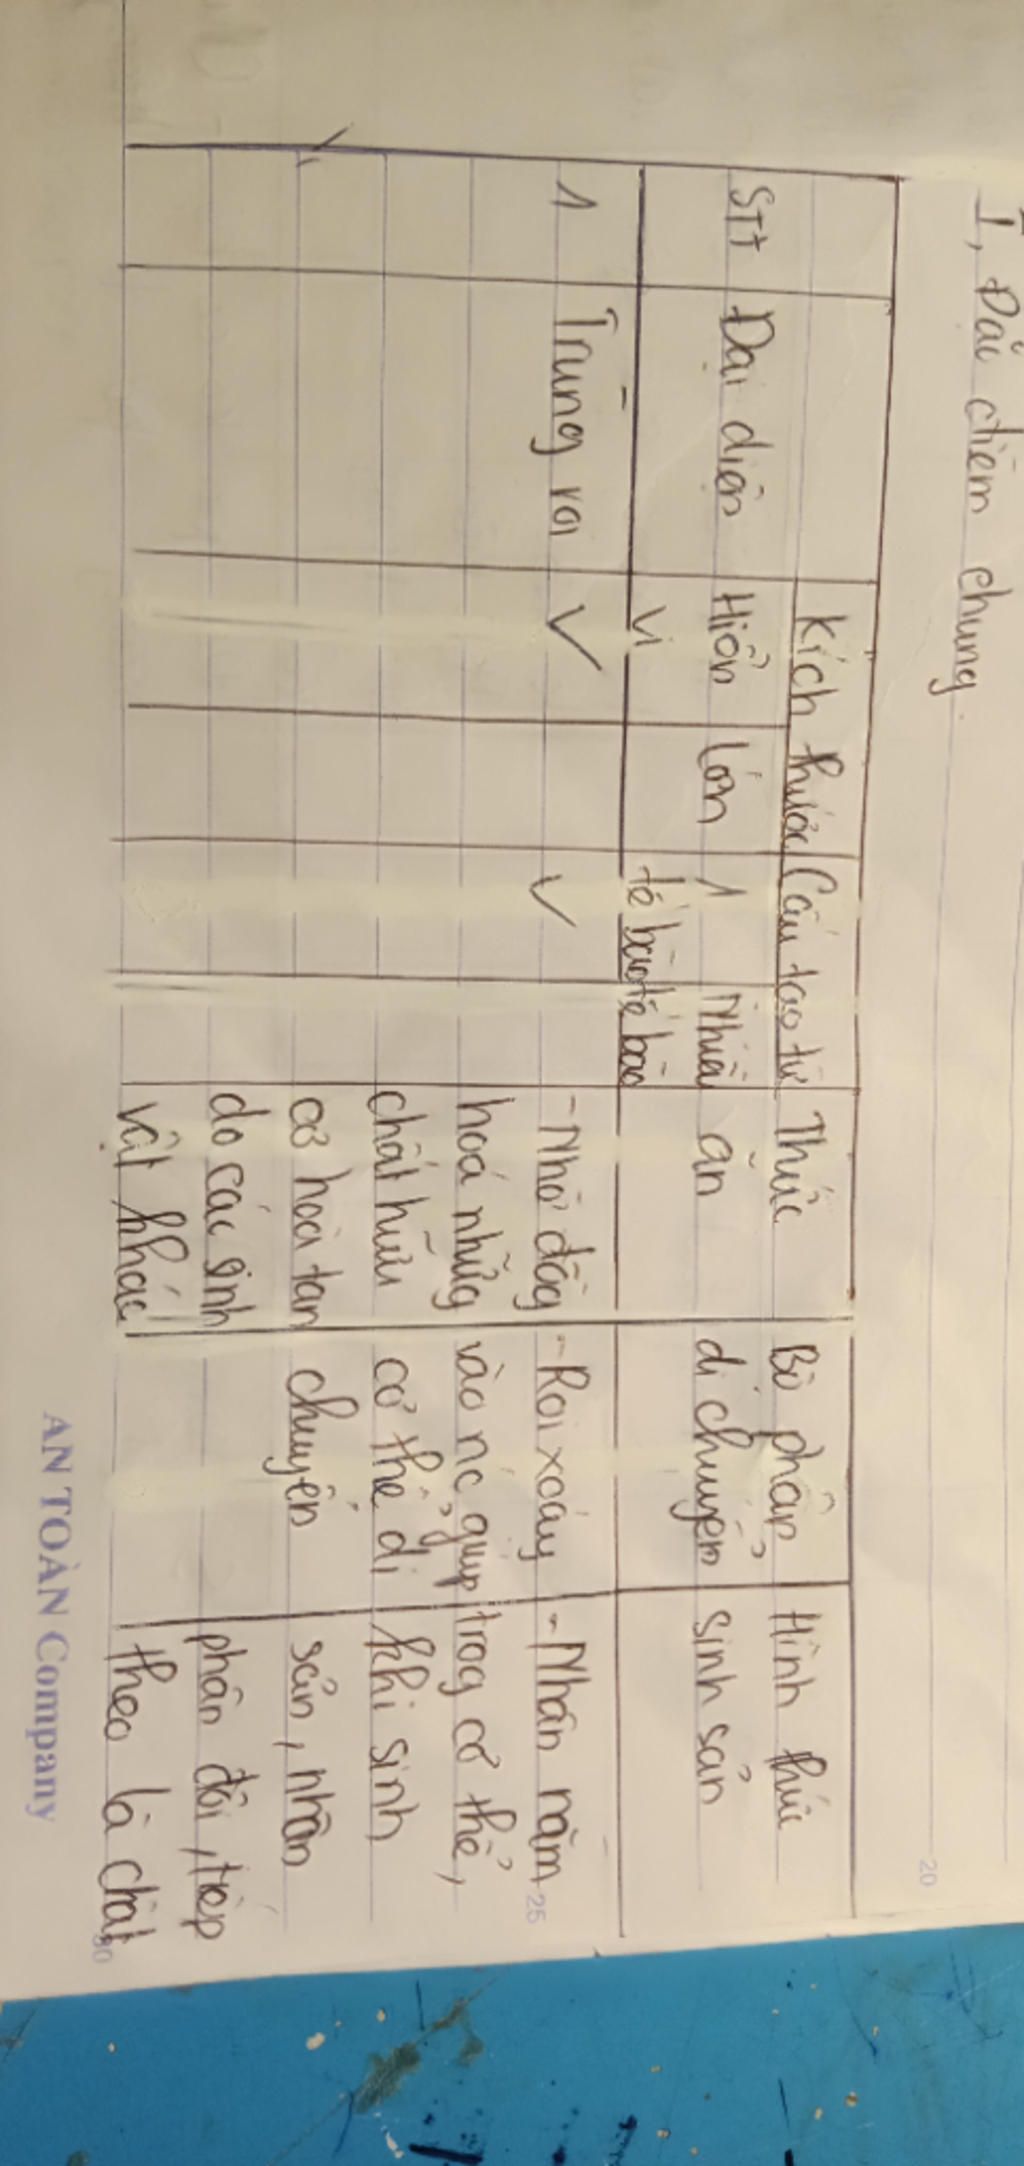 I, Đặc điểm chung.
Kích thước Cấu tạo từ Thức Bộ phận Hình thức
Stt Đại diện Hiển Lớn 1 Nhiều ăn di chuyển sinh sản
Vi tế bào tế bào
1 Trùng roi V V -Nhờ đồng -Roi xoáy -Nhân nằm
hoá những vào nc giúp trog cơ thể,
chất hữu cơ thể di khi sinh
cơ hoà tan chuyển sản, nhân
do các sinh phân đôi, tiếp
vật khác theo là chất
20
25
30
AN TOÀN Company